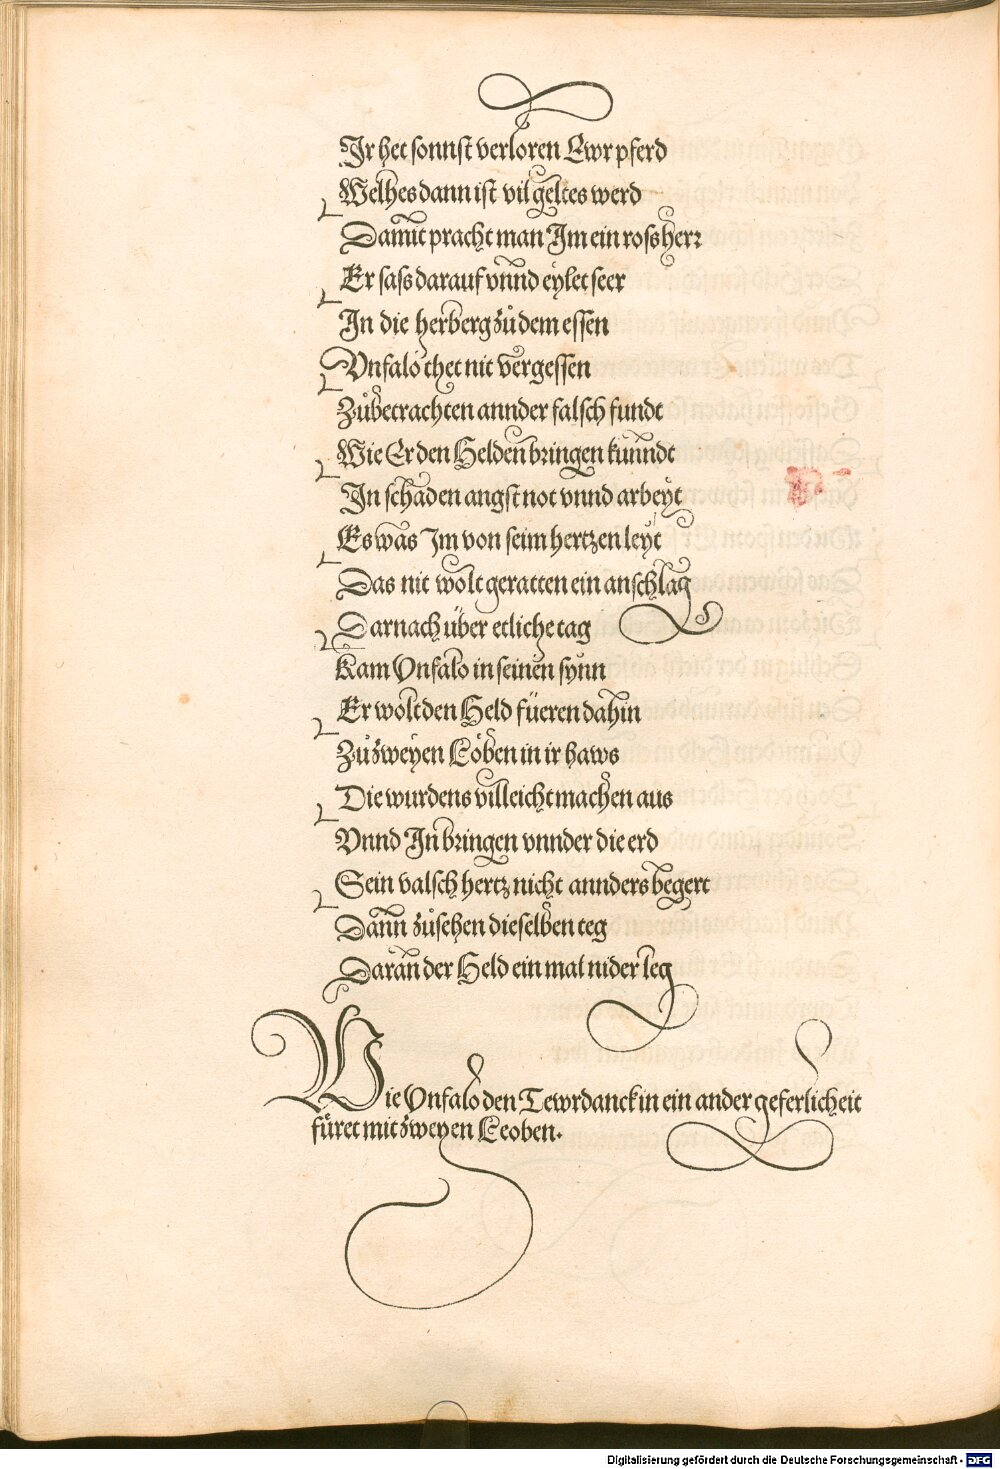 Ir het sonnst verloren Ewr pferd
Welhes dann ist vil geltes werd
Damit pracht man Im ein ross herr
Er sass darauf vnnd eylet seer
In die herberg zů dem essen
Vnfalo thet nit vergessen
Zůbetrachten annder falsch fundt
Wie Er den Helden bringen kunndt
In schaden angst not vnnd arbeyt
Es was Im von seim hertzen leyt
Das nit wolt geratten ein anschlag
Darnach über etliche tag
Kam Vnfalo in seinen synn
Er wolt den Held füeren dahin
Zů zweyen Leoben in ir haws
Die wurdens villeicht machen aus
Vnnd In bringen vnnder die erd
Sein valsch hertz nicht annders begert
Dann zůsehen dieselben teg
Daran der Held ein mal nider leg
Wie Vnfalo den Tewrdanck in ein ander geferlicheit
füret mit zweyen Leoben.
Digitalisierung gefördert durch die Deutsche Forschungsgemeinschaft - DFG